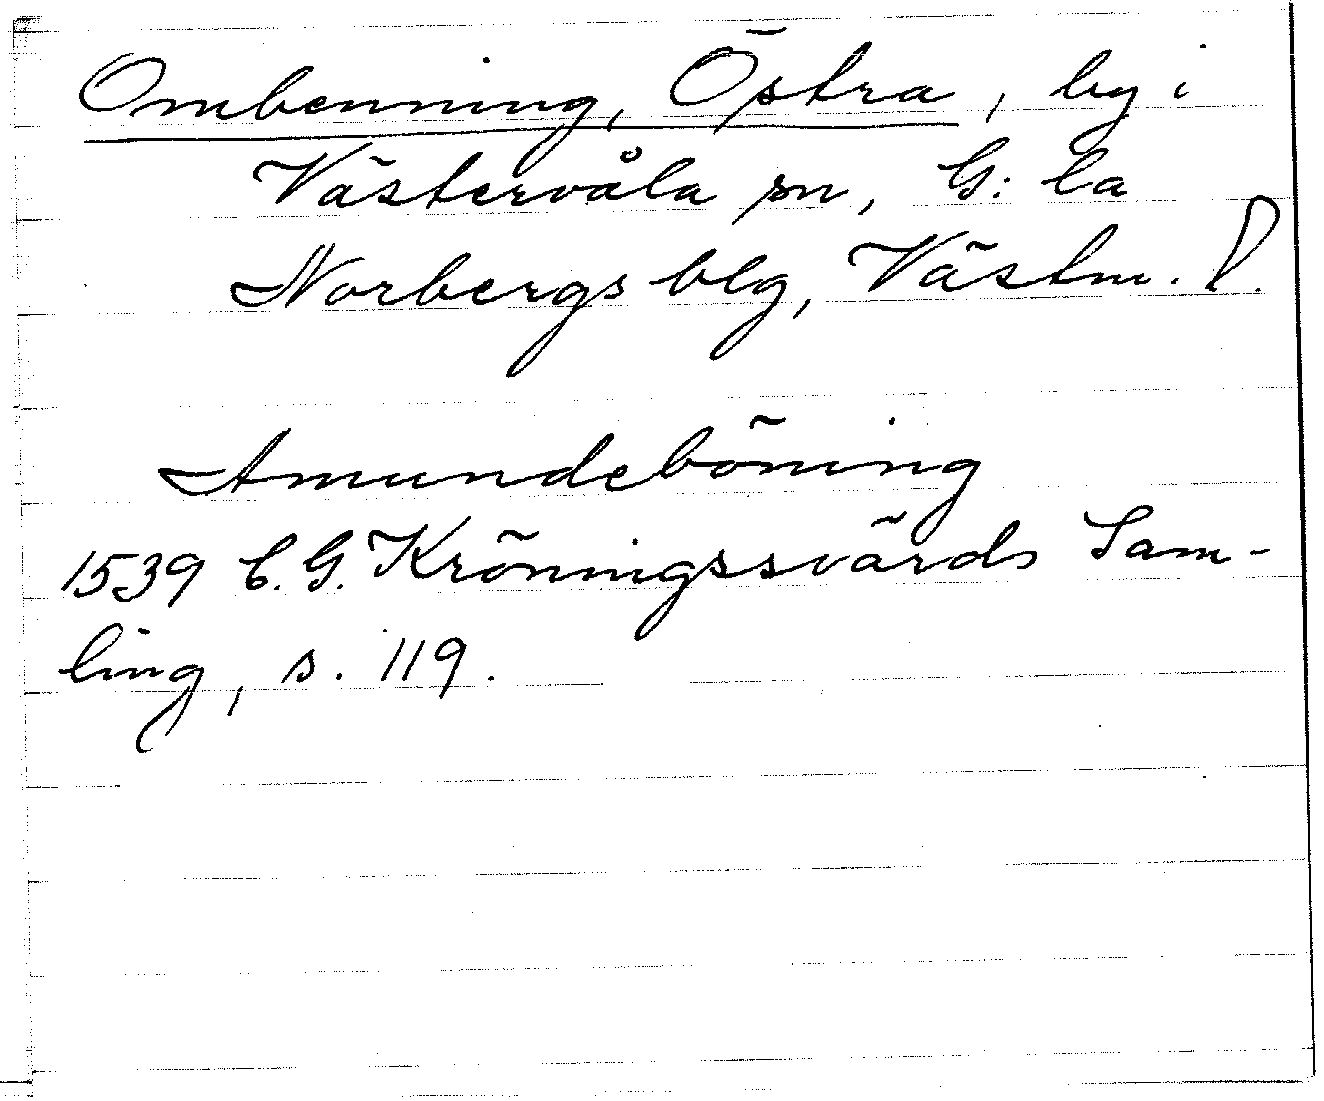 Ombenning, Östra, by i
Västervåla sn, G:la
Norbergs blg, Västm. l.
Amundeböning
1539 C.G. Kröningssvärds Sam-
ling, s. 119.